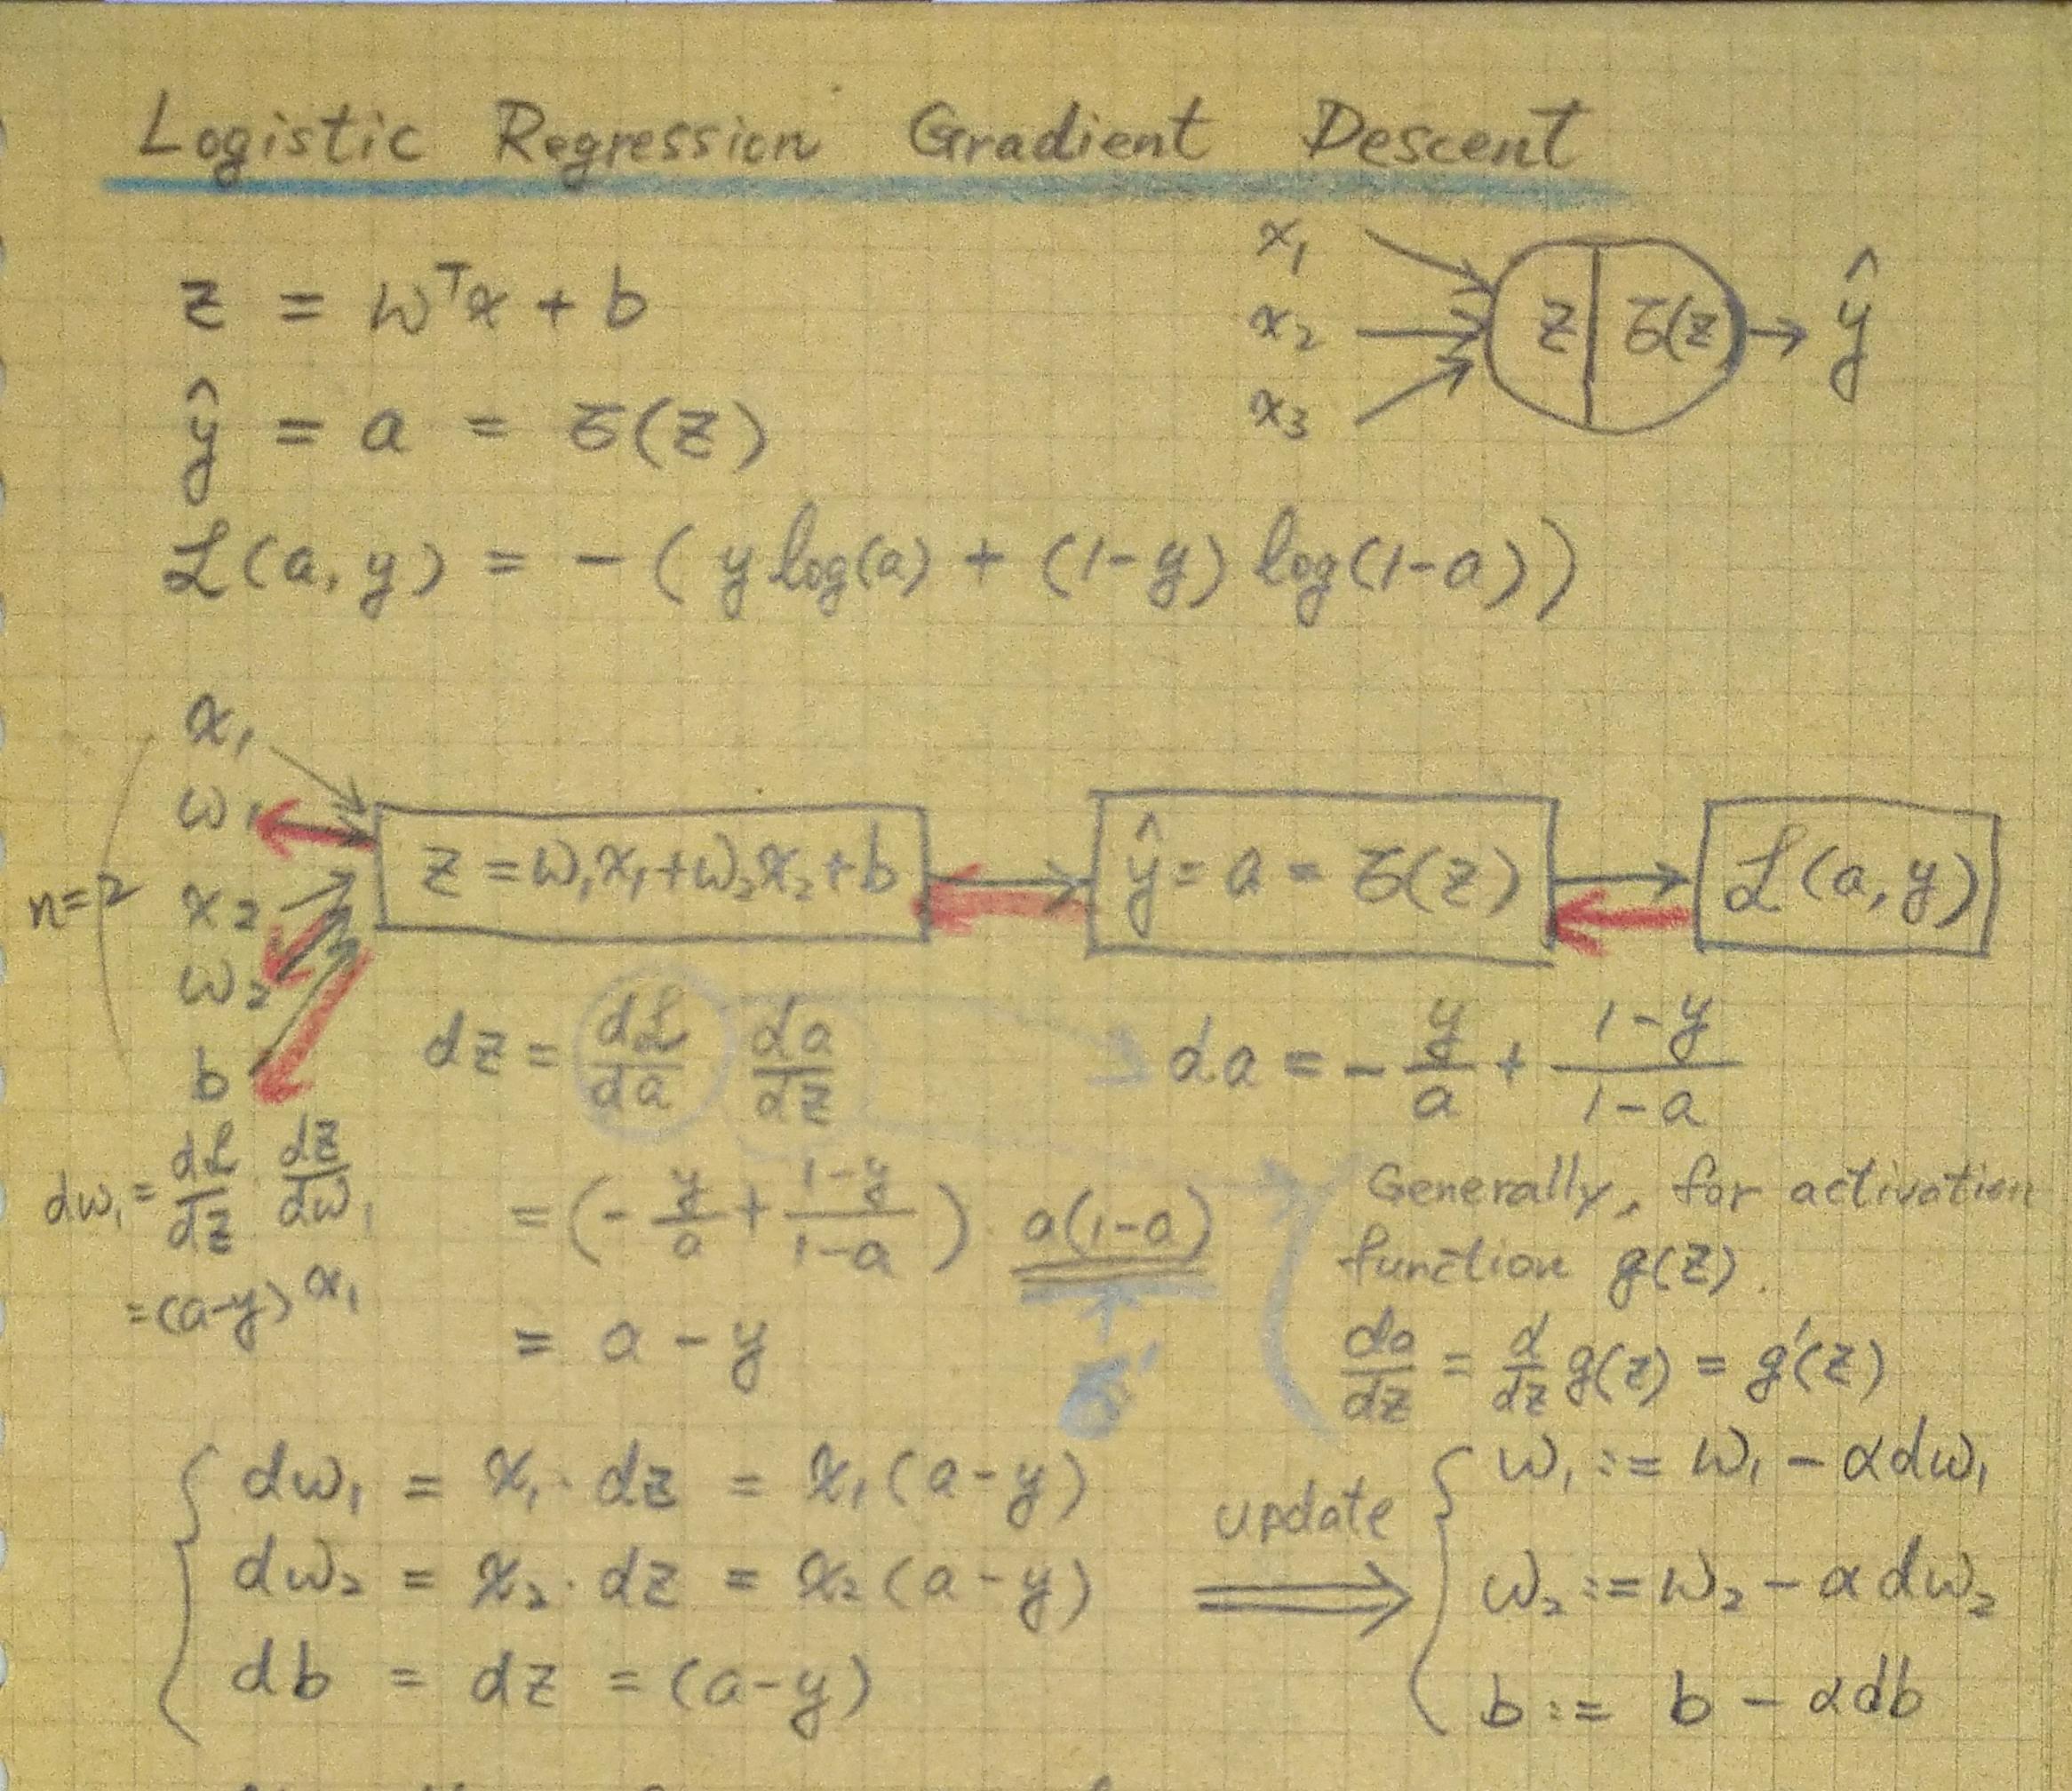 Logistic Regression Gradient Descent
x₁
x₂
x₃
z | σ(z)
ŷ
z = wᵀx + b
ŷ = a = σ(z)
ℒ(a, y) = -(y log(a) + (1-y) log(1-a))
n=2
x₁
w₁
x₂
w₂
b
z = w₁x₁+w₂x₂+b
ŷ = a = σ(z)
ℒ(a, y)
dz = dℒ/da da/dz
da = - y/a + (1-y)/(1-a)
dw₁ = dℒ/dz · dz/dw₁
= (a-y) x₁
= (- y/a + (1-y)/(1-a)) · a(1-a)
σ'
= a - y
Generally, for activation
function g(z).
da/dz = d/dz g(z) = g'(z)
dw₁ = x₁ · dz = x₁(a-y)
dw₂ = x₂ · dz = x₂(a-y)
db = dz = (a-y)
update
w₁ := w₁ - αdw₁
w₂ := w₂ - αdw₂
b := b - αdb